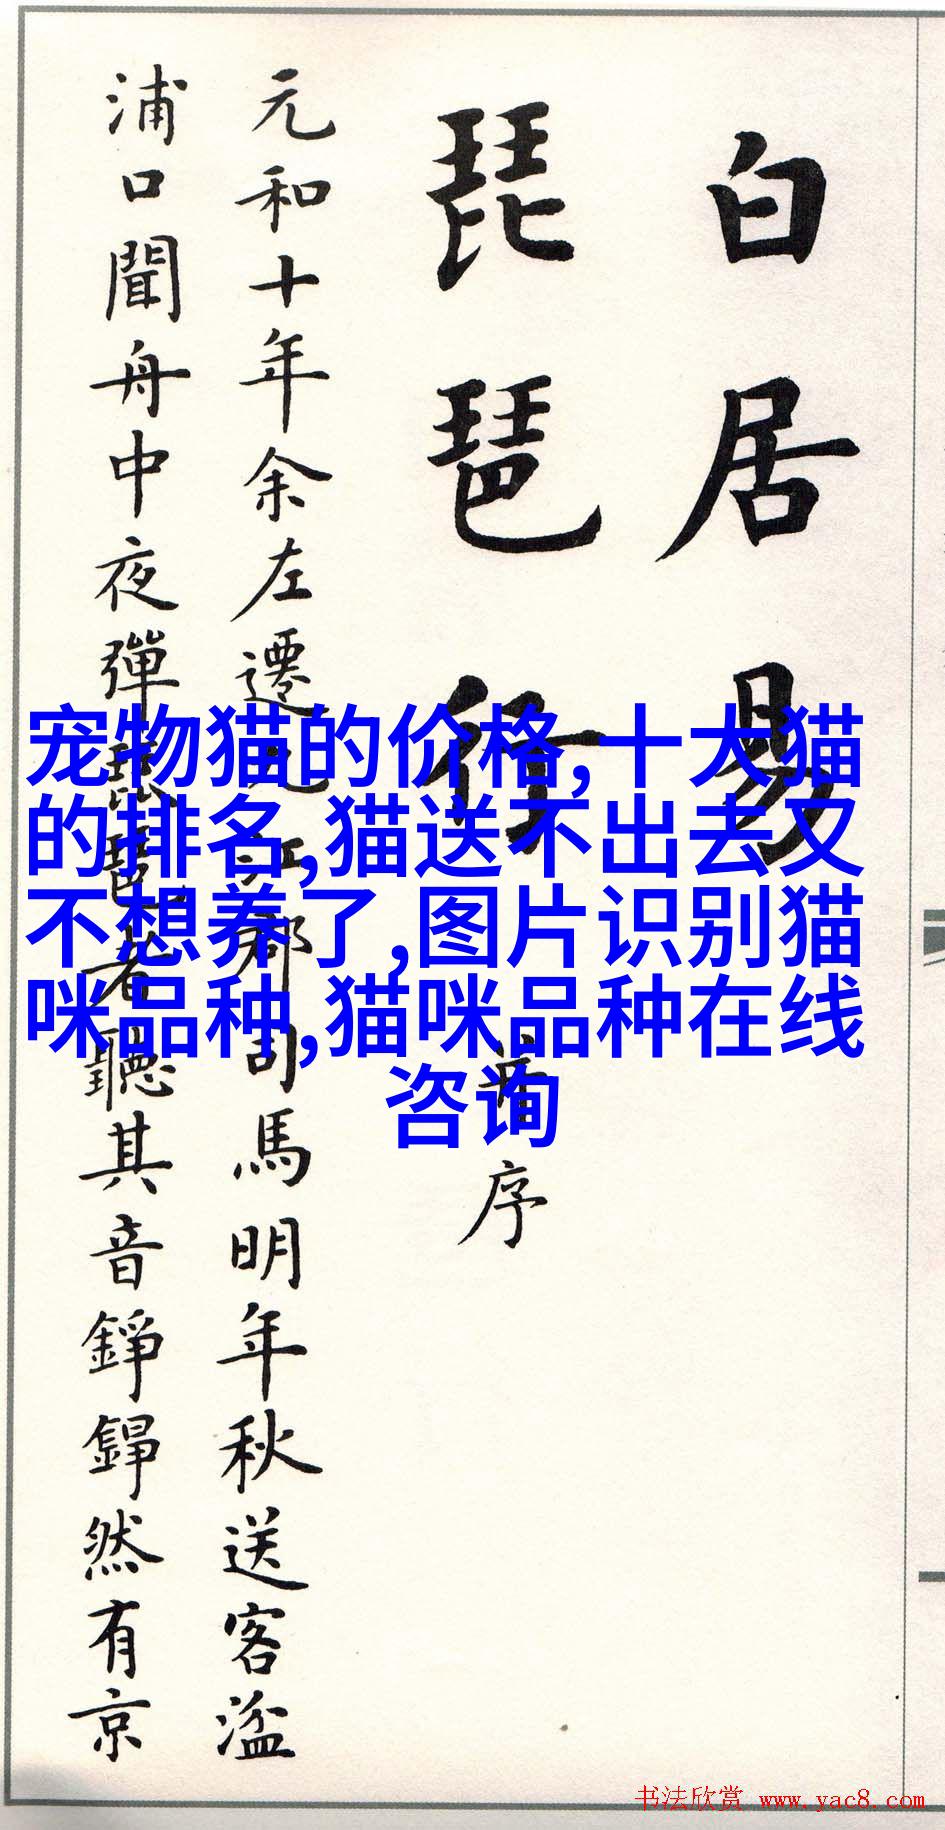 白居易
琵琶行
并序
元和十年余左遷九江郡司馬明年秋送客湓
浦口聞舟中夜彈琵琶者聽其音錚錚然有京
宠物猫的价格,十大猫
的排名,猫送不出去又
不想养了,图片识别猫
咪品种,猫咪品种在线
咨询
书法欣赏 www.yac8.com